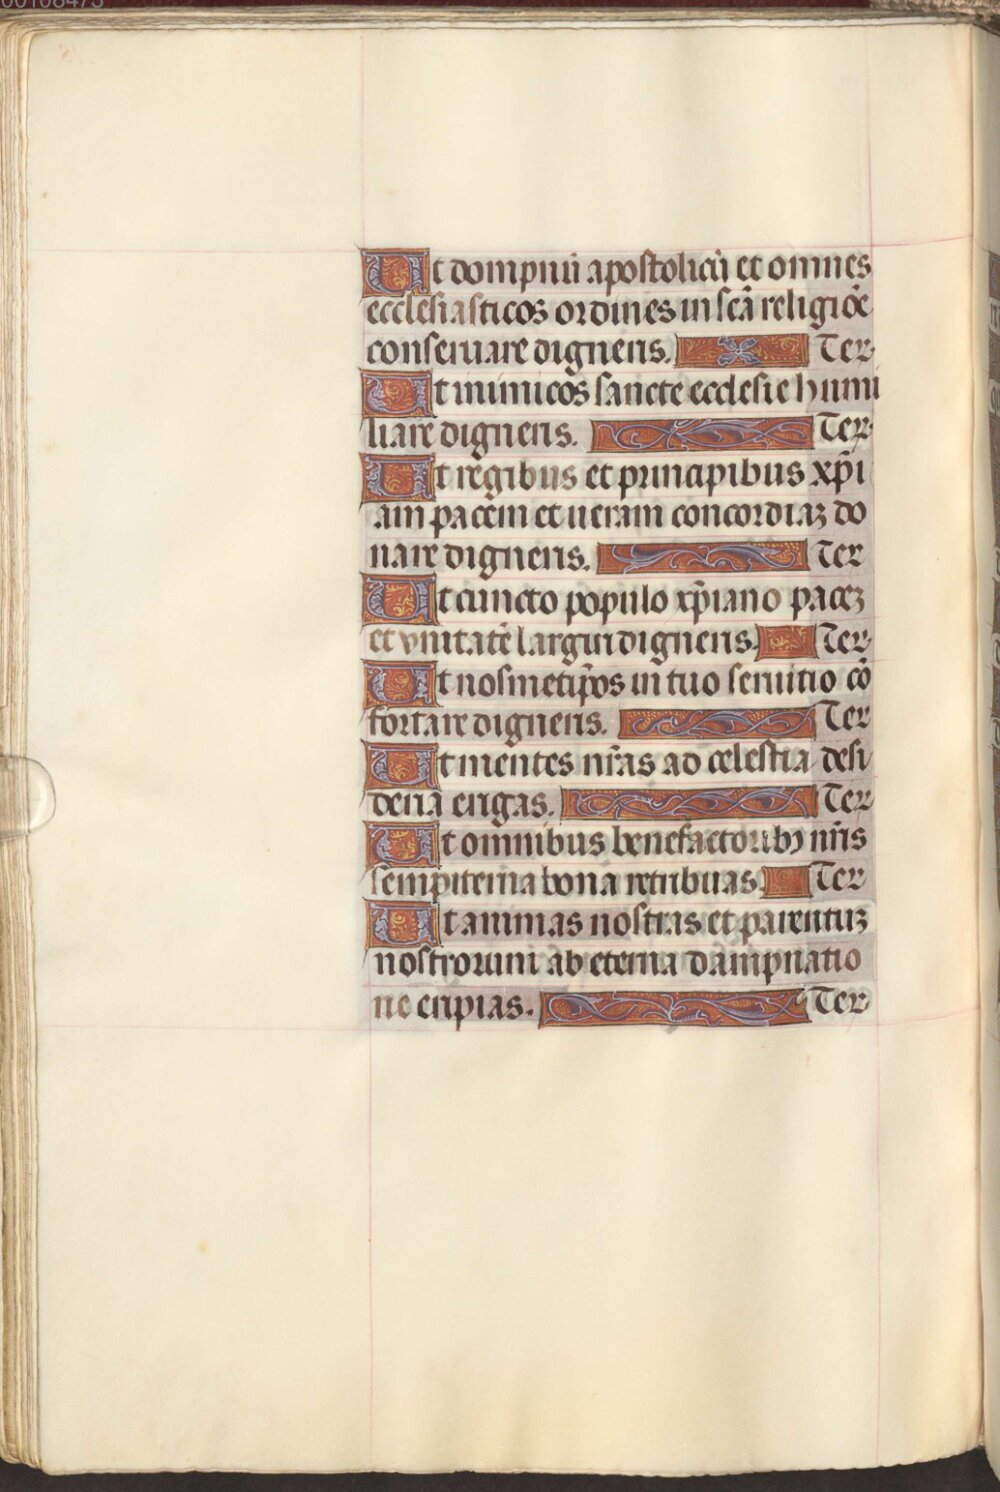 Ut dompnū apostolicū et omnes
ecclesiasticos ordines in scā religiōe
conseruare digneris. Ter
Ut inimicos sancte ecclesie humi
liare digneris. Ter
Ut regibus et principibus xp̄i
am pacem et ueram concordiaꝫ do
nare digneris. Ter
Ut cuncto populo xp̄iano paceꝫ
et vnitatē largiri digneris. Ter
Ut nosmetip̄os in tuo seruitio cō
fortare digneris. Ter
Ut mentes nr̄as ad celestia desi
deria erigas. Ter
Ut omnibus benefactoribꝫ nr̄is
sempiterna bona retribuas. Ter
Ut animas nostras et parentuꝫ
nostrorum ab eterna dampnatio
ne eripias. Ter